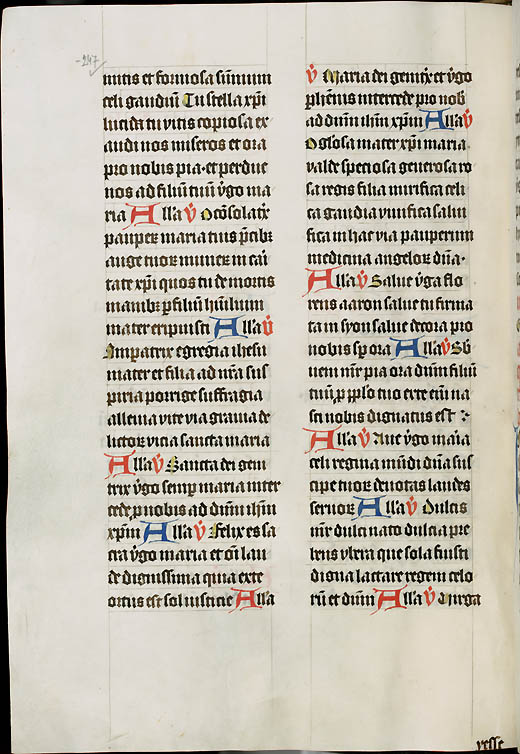 -247
mitis et formosa su̅mum
celi gaudiu̅ Tu stella xp̅i
lucida tu vitis copiosa ex
audi nos miseros et ora
pro nobis pia· et perduc
nos ad filiu̅ tuu̅ v̾go ma
ria Alla V̾ O co̅solatix̾
pauper̾ maria tuis p̅cibꝫ
auge tuor̾ muner̾ in cai̾
tate xp̅i quos tu de mortis
manibꝫ p̲ filiu̅ hu̅ilium
mater eripuisti Alla V̾
Imp̲atrix egregia ihesu
mater et filia ad nr̅a sus
piria porrige suffragia
alleuia vite via grauia de
lictor̾ vicia sancta maria
Alla V̾ Sancta dei geni
trix v̾go semp̲ maria inter
cede p̲ nobis ad dn̅m ihm̅
xpm̅ Alla V̾ Felix es sa
cra v̾go maria et o̅i lau
de dignissima quia ex te
ortus est sol iusticie Alla
V̾ Maria dei genitx̾ et v̾go
p̲hen̅is intercede pro nob̾
ad dn̅m ihm̅ xp̅m Alla V̾
O gl̅osa mater xp̅i maria
valde speciosa generosa ro
sa regis filia mirifica celi
ca gaudia viuifica salui
fica in hac via pauperum
medicina angelor̾ dn̅a·
Alla V̾ Salue v̾ga flo
rens aaron salue tu firma
ta in syon salue decora pro
nobis sp̲ ora Alla V̾ Sb̾
ueni mr̅ pia ora dn̅m filiu̅
tuu̅ p̲ pp̅lo tuo ex te eni̅ na
sci nobis dignatus est :·
Alla V̾ Aue v̾go mai̾a
celi regina mu̅di dn̅a sus
cipe tuor̾ deuotas laudes
seruor̾ Alla V̾ Dulcis
mr̅ dulci nato dulcia pre
bens vbera que sola fuisti
digna lactare regem celo
ru̅ et dn̅m Alla V̾ Virga
yesse